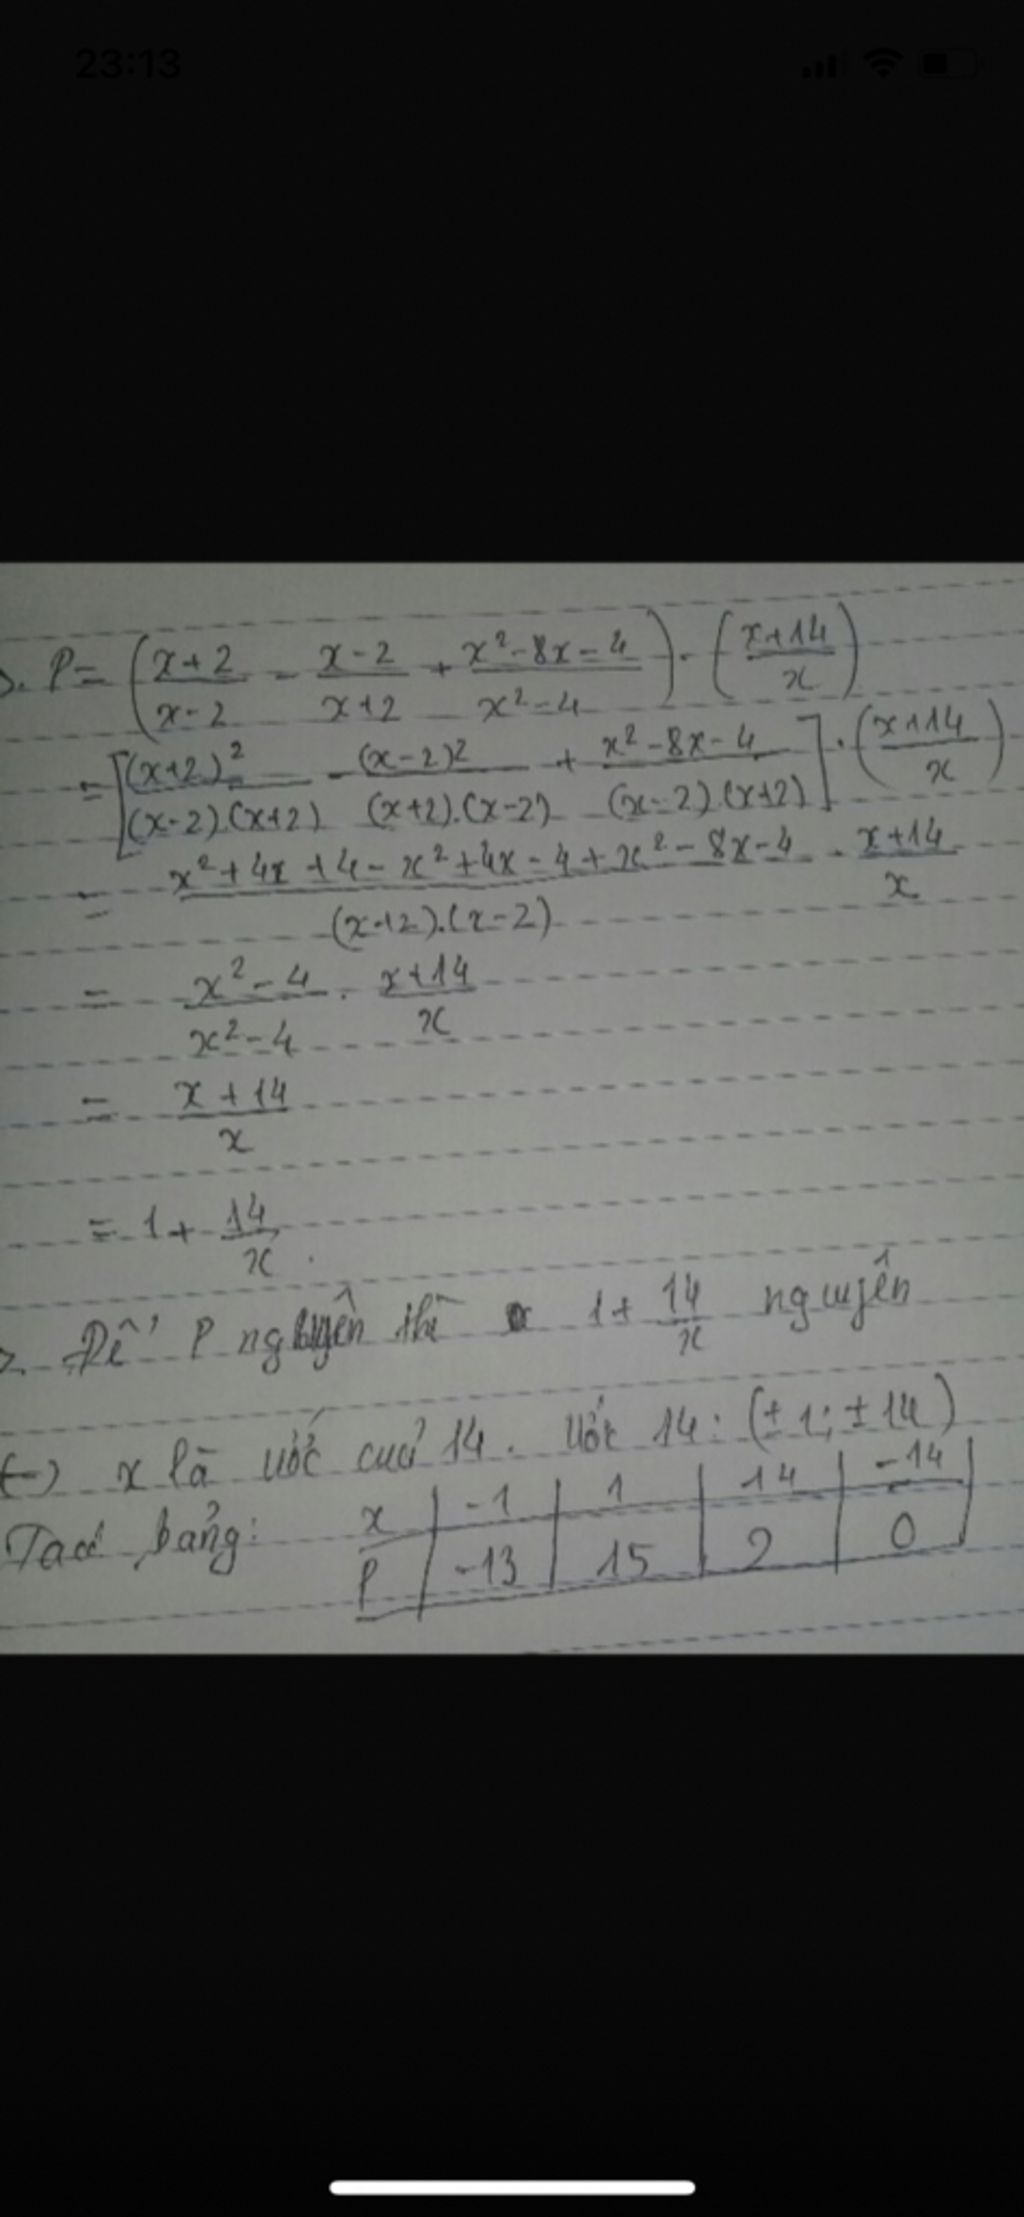 23:13
P = (x+2/x-2 - x-2/x+2 + x²-8x-4/x²-4) . (x+14/x)
= [(x+2)²/(x-2).(x+2) - (x-2)²/(x+2).(x-2) + x²-8x-4/(x-2).(x+2)] . (x+14/x)
= x²+4x+4-x²+4x-4+x²-8x-4/(x+2).(x-2) . x+14/x
= x²-4/x²-4 . x+14/x
= x+14/x
= 1+ 14/x .
Để P nguyên thì 1+ 14/x nguyên
(-) x là ước của 14. Ước 14: (±1; ±14)
bảng: x | -1 | 1 | 14 | -14 |
P | -13 | 15 | 2 | 0 |